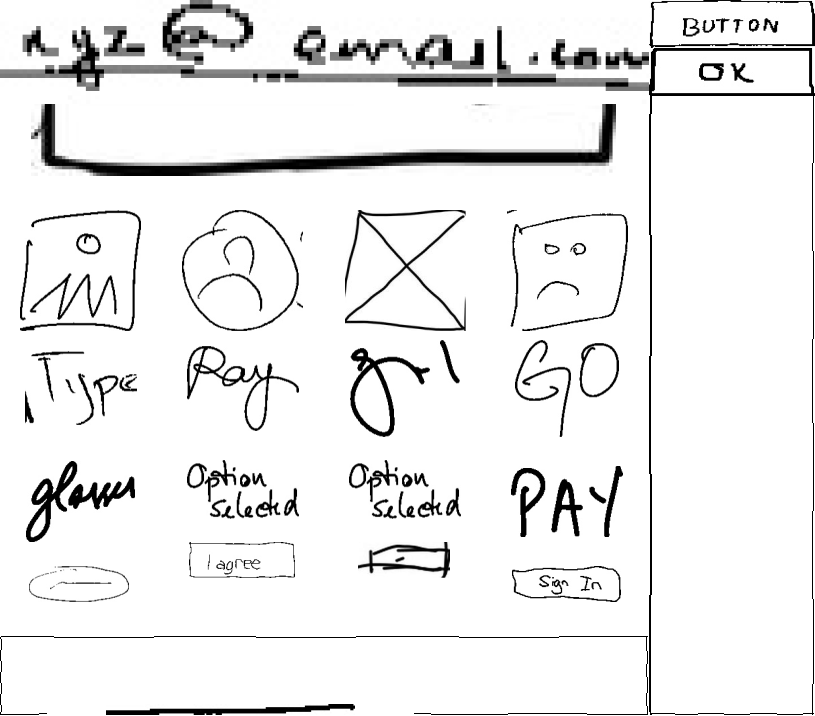 xyz@email.com
BUTTON
OK
Type
Pay
girl
GO
glasses
Option
selected
Option
selected
PAY
I agree
Sign In